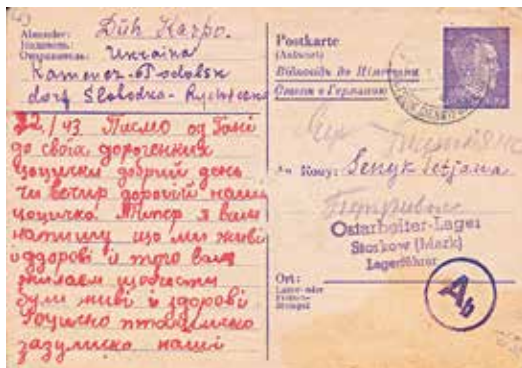 Absender: Düh Karpo.
Надавець:
Отправитель: Ukraina
Kamenez-Podolsk
dorf Slobodka-Rychtecka
22/43 Писмо од Гані
до своїа дорогенкиа
цоцички добрий день
чи вечир дорогій наші
цоцичко. Типер я вам
напишу що ми живі
і здорові и того вам
жилаєм щобисти
були живі і здорові
зазулико наші
Postkarte
(Antwort)
Відповідь до Німеччини
Ответ в Германию
An Кому: Senyk Tetjana
Ostarbeiter-Lager
Storkow (Mark)
Lagerführer
Ort:
Ab